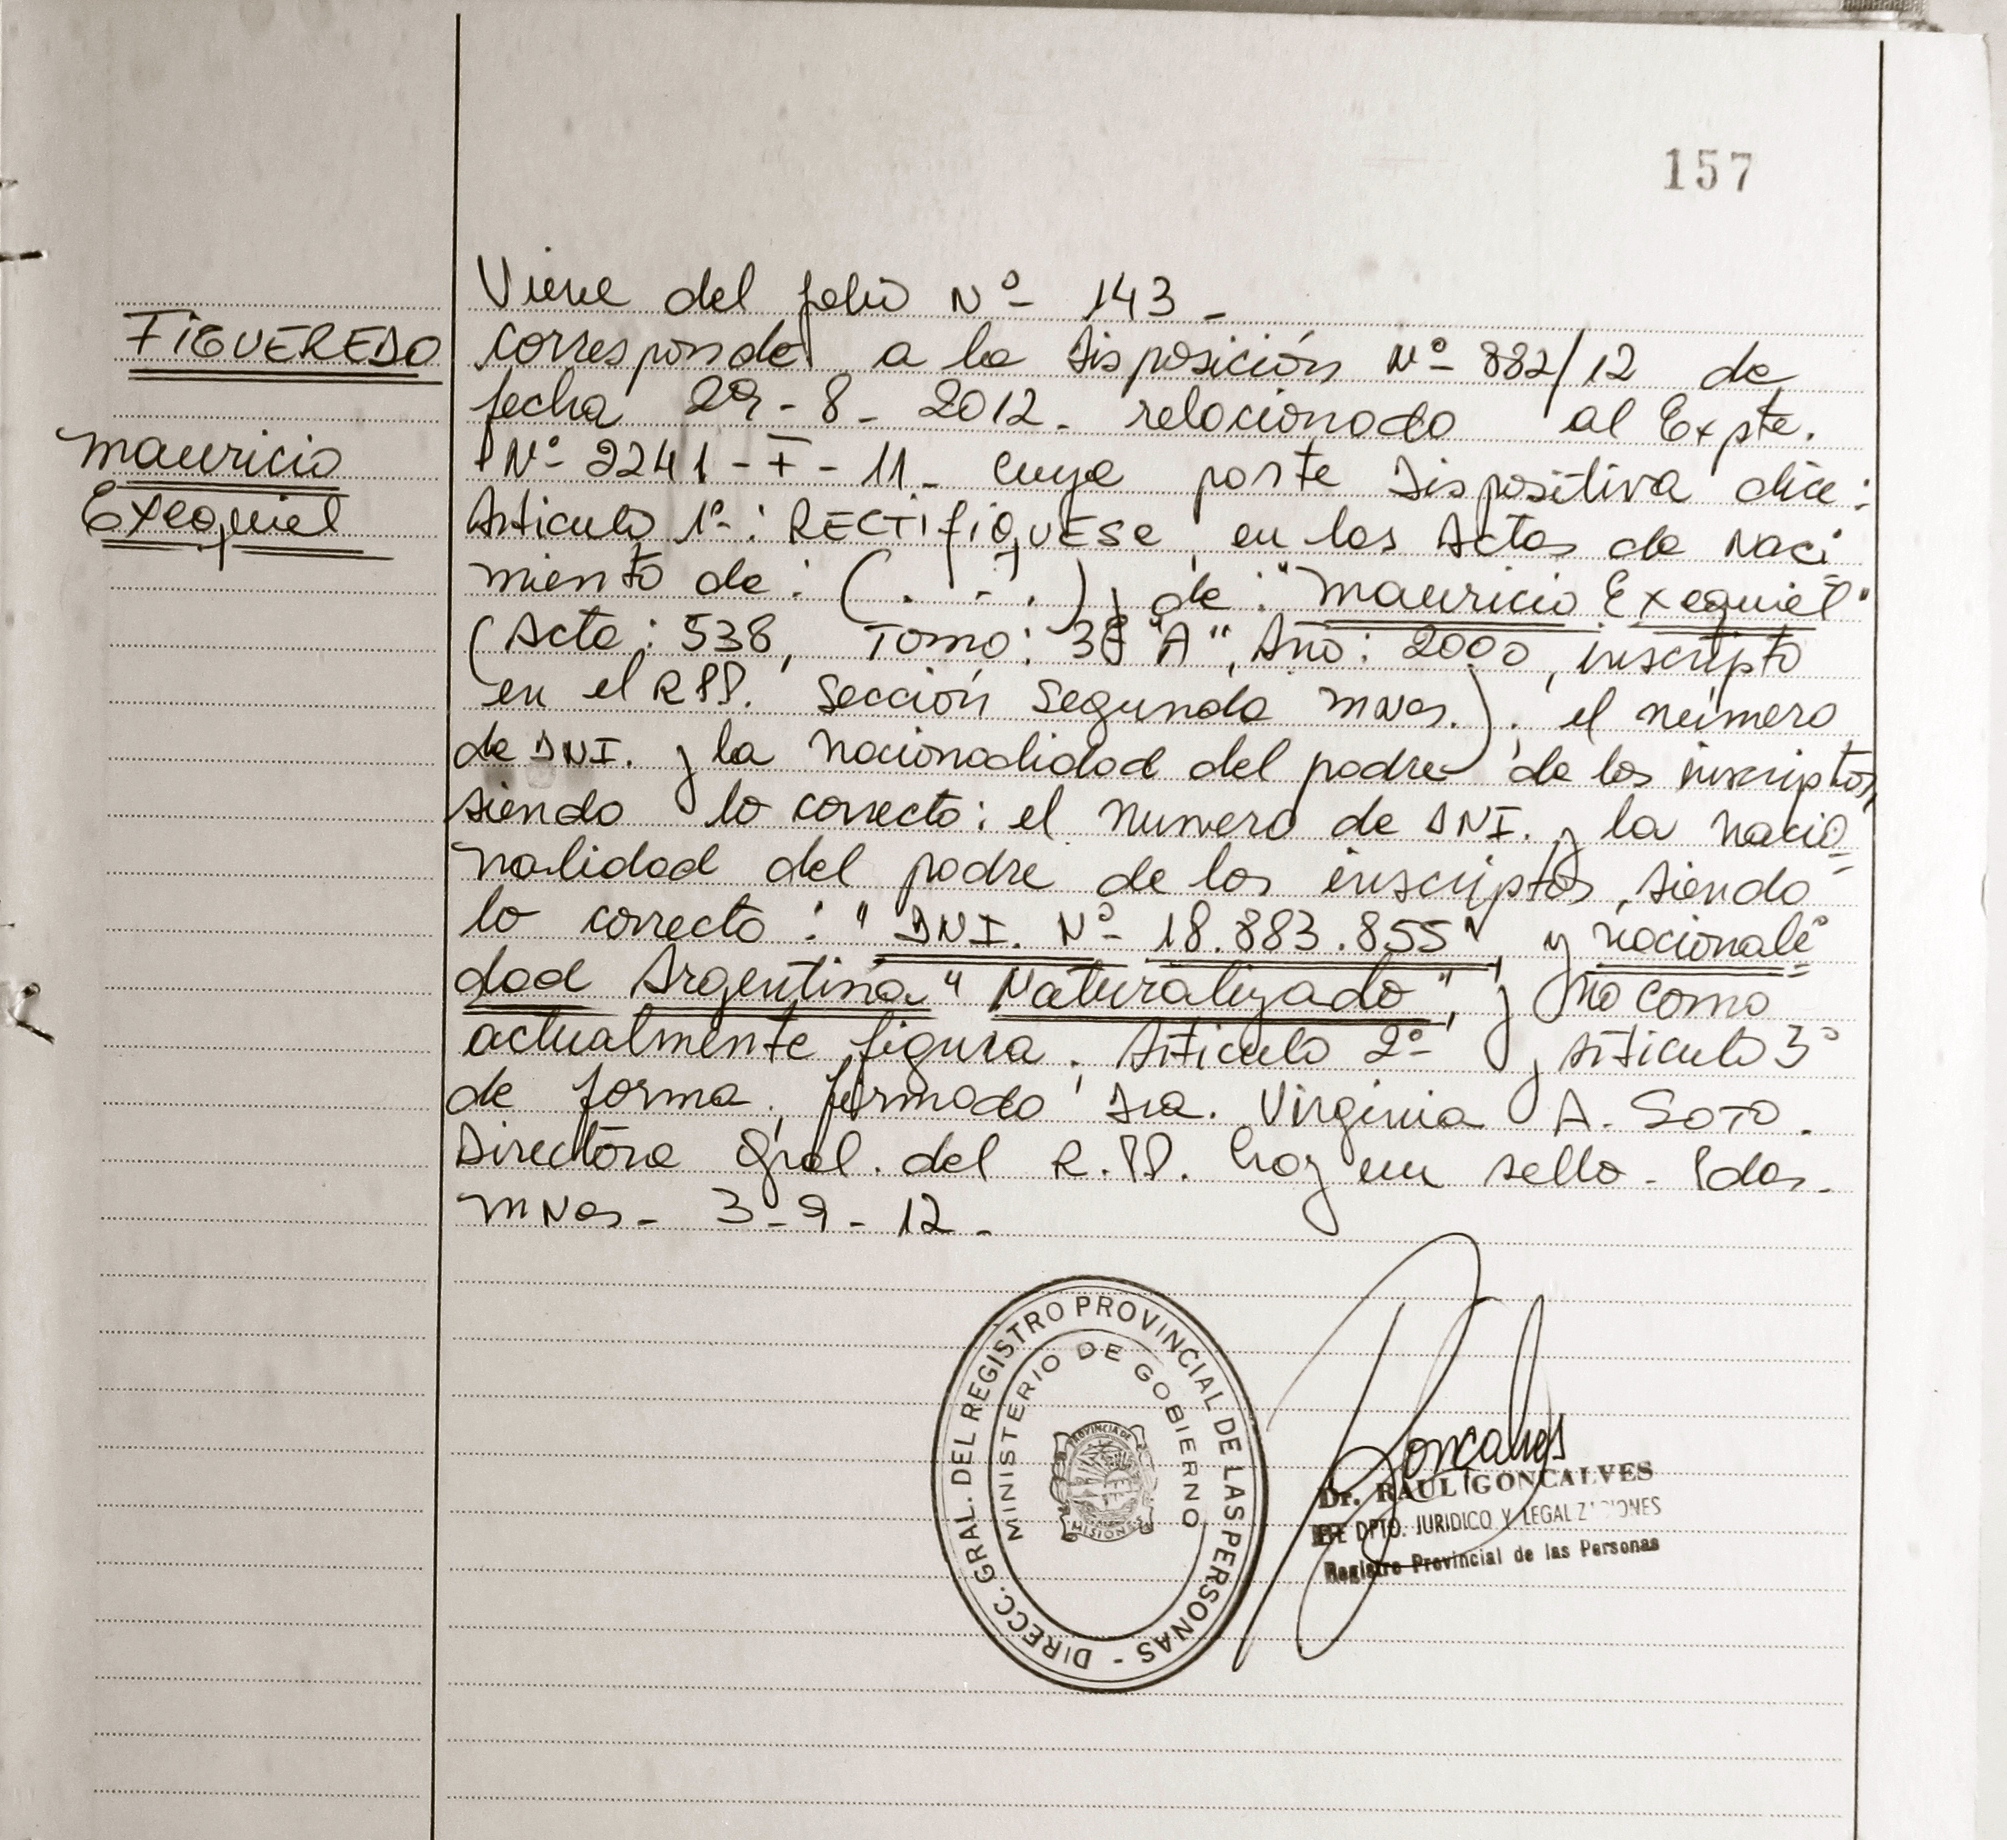 157
FIGUEREDO
Mauricio
Exequiel
Viene del folio Nº 143 -
corresponde a la Disposición Nº 882/12 de
fecha 29-8-2012. relacionado al Expte.
Nº 2241-F-11- cuya parte Dispositiva dice:
Articulo 1º: RECTIFIQUESE, en las Actas de Naci
miento de: (. - .) y de: "Mauricio Exequiel"
(Acta: 538, Tomo: 3 "A", Año: 2000, inscripto
en el RPP. Sección Segunda Mnes.), el número
de DNI. y la nacionalidad del padre de los inscriptos,
siendo lo correcto: el numero de DNI. y la nacio=
nalidad del padre de los inscriptos, siendo
lo correcto: "DNI. Nº 18.883.855" y nacionali=
dad Argentina "Naturalizado", y no como
actualmente figura. Articulo 2º y Articulo 3º
de forma, firmado Dra. Virginia A. SOTO.
Directora Gral. del R.PP. hay un sello. Pdas.
Mnes- 3-9-12-
DIRECC. GRAL. DEL REGISTRO PROVINCIAL DE LAS PERSONAS -
MINISTERIO DE GOBIERNO
PROVINCIA DE
MISIONES
Goncalves
Dr. RAUL GONCALVES
DPTO. JURIDICO Y LEGALIZACIONES
Registro Provincial de las Personas